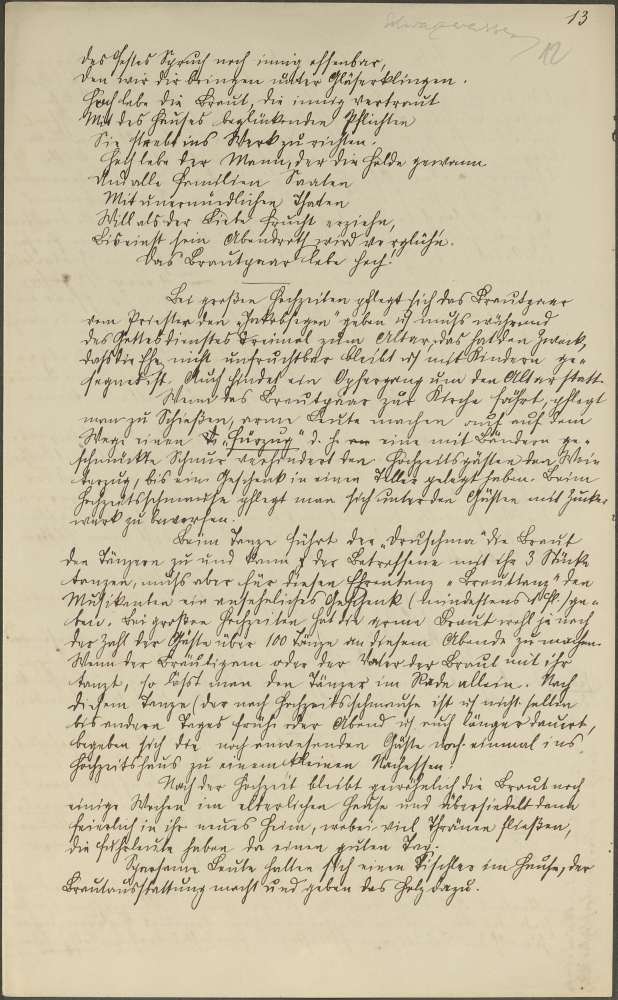 13
12
des Festes Spruch noch innig offenbar,
Den wir dir bringen unter Gläserklingen.
Hoch lebe die Braut, die innig vertraut
Mit des Hauses beglückenden Pflichten
Sie strebt ins Werk zu richten.
Hoch lebe der Mann, der die Holde gewann
Und alle Familien Saaten
Mit unermüdlichen Thaten
Will als der Liebe Frucht erziehn,
Bis einst sein Abendroth wird verglühn.
Das Brautpaar lebe hoch!
Bei großen Hochzeiten pflegt sich das Brautpaar
vom Priester den „Jakobssegen" geben u muß während
des Gottesdienstes dreimal zum Altar, das hat den Zweck,
daß die Ehe nicht unfruchtbar bleibt u mit Kindern ge-
segnet ist. Auch findet ein Opfergang um den Altar statt.
Wenn das Brautpaar zur Kirche fährt, pflegt
man zu Schießen, arme Leute machen auch auf dem
Wege einen „Fürzug" d. h. eine mit Bändern ge-
schmückte Schnur verhindert den Hochzeitsgästen den Wei-
terzug, bis ein Geschenk in einen Teller gelegt haben. Beim
Hochzeitsschmause pflegt man sich unter den Gästen mit Zucker
werk zu bewerfen.
Beim Tanze führt der „Druschma" die Braut
den Tänzern zu und kann der Betroffene mit ihr 3 Stücke
tanzen, muß aber für diesen Ehrentanz „Brauttanz" den
Musikanten ein ansehnliches Geschenk (mindestens 1 fl.) ge-
ben. Bei großen Hochzeiten hat die arme Braut wohl je nach
der Zahl der Gäste über 100 Tänze an diesem Abende zu machen.
Wenn der Bräutigam oder der Vater der Braut mit ihr
tanzt, so läßt man den Tänzer im Rade allein. Nach
diesem Tanze (der nach Hochzeitsschmause ist u nicht selten
bis andern Tages früh oder Abend u auch länger dauert,
begeben sich die noch anwesenden Gäste noch einmal ins
Hochzeitshaus zu einem kleinen Nachessen.
Nach der Hochzeit bleibt gewöhnlich die Braut noch
einige Wochen im elterlichen Hause und übersiedelt dann
feierlich in ihr neues Heim, wobei viel Thränen fließen,
die Fuhrleute haben da einen guten Tag.
Sparsame Leute halten sich einen Tischler im Hause, der
Brautausstattung macht und geben das Holz dazu.